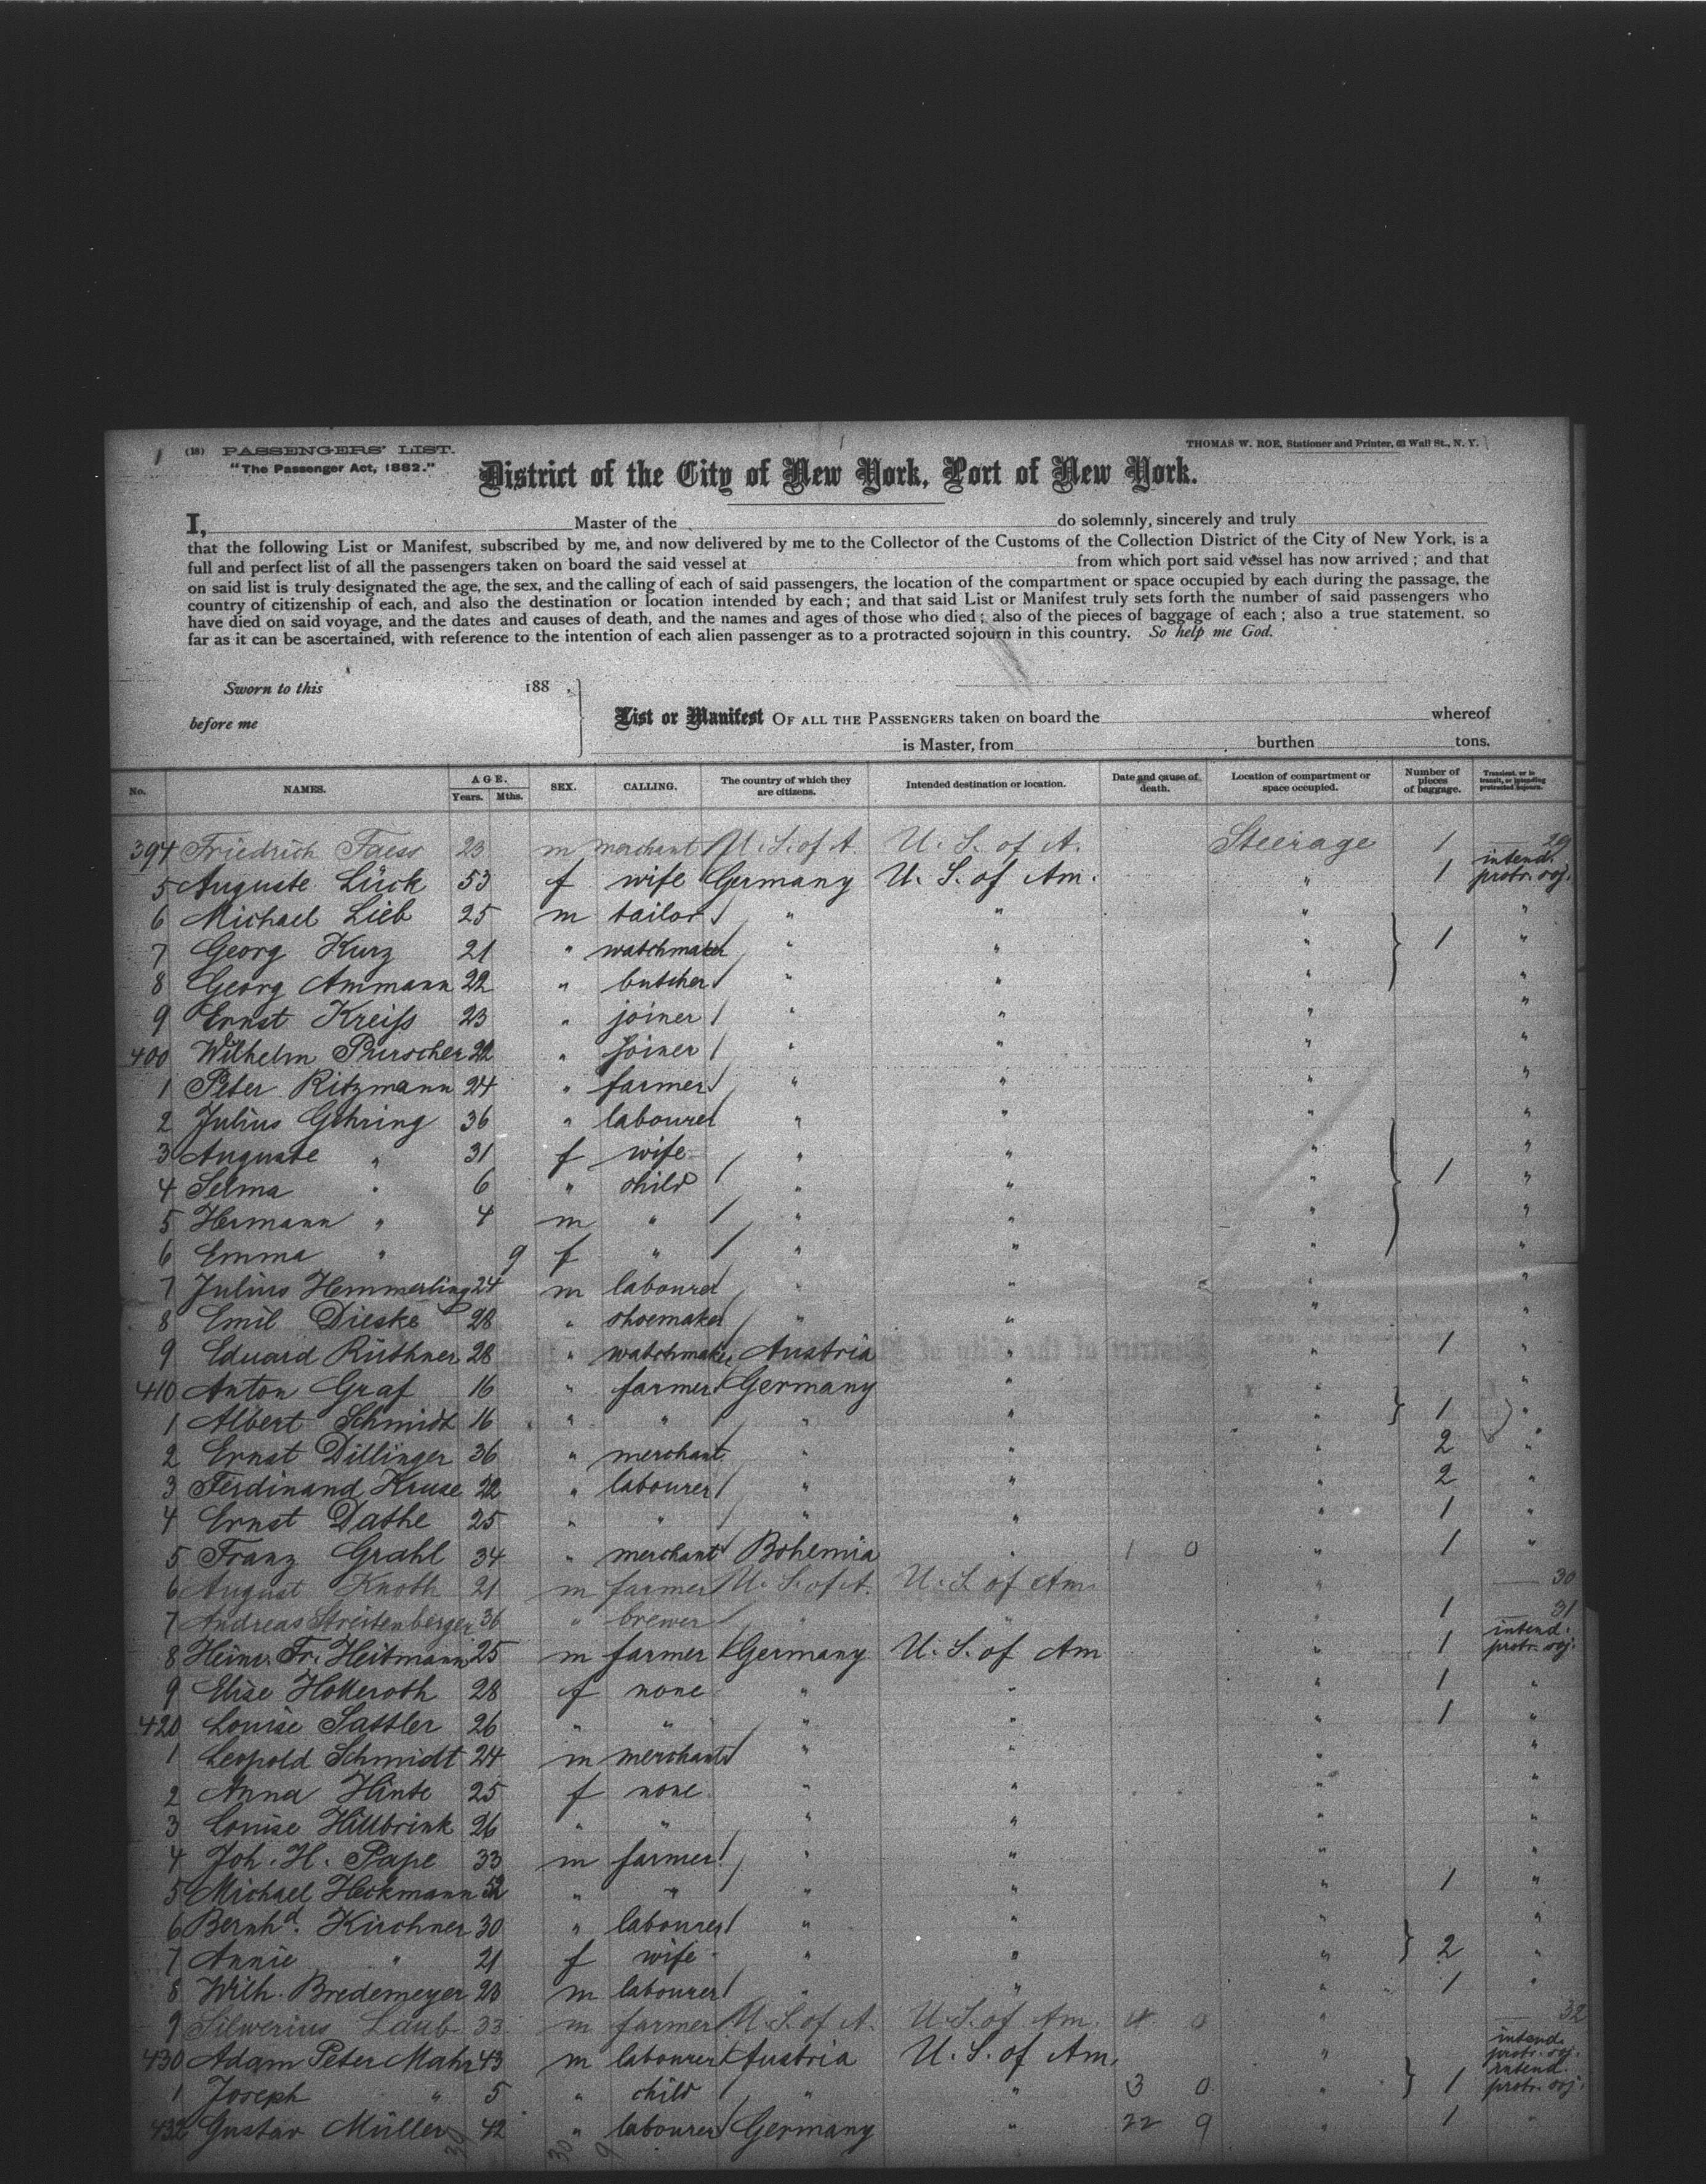 (18) PASSENGERS' LIST.
"The Passenger Act, 1882."
THOMAS W. ROE, Stationer and Printer, 63 Wall St., N. Y.
District of the City of New York, Port of New York.
I, Master of the do solemnly, sincerely and truly
that the following List or Manifest, subscribed by me, and now delivered by me to the Collector of the Customs of the Collection District of the City of New York, is a
full and perfect list of all the passengers taken on board the said vessel at from which port said vessel has now arrived; and that
on said list is truly designated the age, the sex, and the calling of each of said passengers, the location of the compartment or space occupied by each during the passage, the
country of citizenship of each, and also the destination or location intended by each; and that said List or Manifest truly sets forth the number of said passengers who
have died on said voyage, and the dates and causes of death, and the names and ages of those who died; also of the pieces of baggage of each; also a true statement, so
far as it can be ascertained, with reference to the intention of each alien passenger as to a protracted sojourn in this country. So help me God.
Sworn to this 188 .
before me
List or Manifest OF ALL THE PASSENGERS taken on board the whereof
is Master, from burthen tons.
No. NAMES. AGE. Years. Mths. SEX. CALLING. The country of which they are citizens. Intended destination or location. Date and cause of death. Location of compartment or space occupied. Number of pieces of baggage. Transient, or in transit, or intending protracted sojourn.
394 Friedrich Faess 23 m merchant U. S. of A. U. S. of A. Steerage 1 29
5 Auguste Lück 53 f wife Germany U. S. of Am. " 1 intend. protr. soj.
6 Michael Lieb 25 m tailor " " " "
7 Georg Kurz 21 " watchmaker " " " 1 "
8 Georg Ammann 22 " butcher " " " "
9 Ernst Kreiſs 23 " joiner " " " "
400 Wilhelm Purscher 22 " joiner " " " "
1 Peter Ritzmann 24 " farmer " " " "
2 Julius Gehring 36 " labourer " " " "
3 Auguste " 31 f wife " " " "
4 Selma " 6 " child " " " 1 "
5 Hermann " 4 m " " " " "
6 Emma " 9 f " " " " "
7 Julius Hemmerling 24 m labourer " " " "
8 Emil Dieske 28 " shoemaker " " " "
9 Eduard Rüthner 28 " watchmaker Austria " " 1 "
410 Anton Graf 16 " farmer Germany " " "
1 Albert Schmidt 16 " " " " " 1 "
2 Ernst Dillinger 36 " merchant " " " 2 "
3 Ferdinand Kruse 22 " labourer " " " 2 "
4 Ernst Dathe 25 " " " " " 1 "
5 Franz Grahl 34 " merchant Bohemia " 1 0 " 1 "
6 August Knoth 21 m farmer U. S. of A. U. S. of Am. " 30
7 Andreas Streitenberger 36 " brewer " " " 1 31
8 Heinr. Fr. Heitmann 25 m farmer Germany U. S. of Am " 1 intend. protr. soj.
9 Elise Holleroth 28 f none " " " 1 "
420 Louise Sattler 26 " " " " " 1 "
1 Leopold Schmidt 24 m merchant " " " "
2 Anna Hinte 25 f none " " " "
3 Louise Hillbrink 26 " " " " " "
4 Joh. H. Pape 33 m farmer " " " "
5 Michael Heckmann 52 " " " " " 1 "
6 Bernhd. Kirchner 30 " labourer " " " "
7 Annie " 21 f wife " " " 2 "
8 Wilh. Bredemeyer 23 m labourer " " " 1 "
9 Silwerius Laub 33 m farmer U. S. of A. U. S. of Am. 4 0 " 32
430 Adam Peter Mahr 43 m labourer Austria U. S. of Am. " intend. protr. soj.
1 Joseph " 5 " child " " 3 0 " 1 intend. protr. soj.
432 Gustav Müller 42 " labourer Germany " 22 9 " 1 "
30 30 9